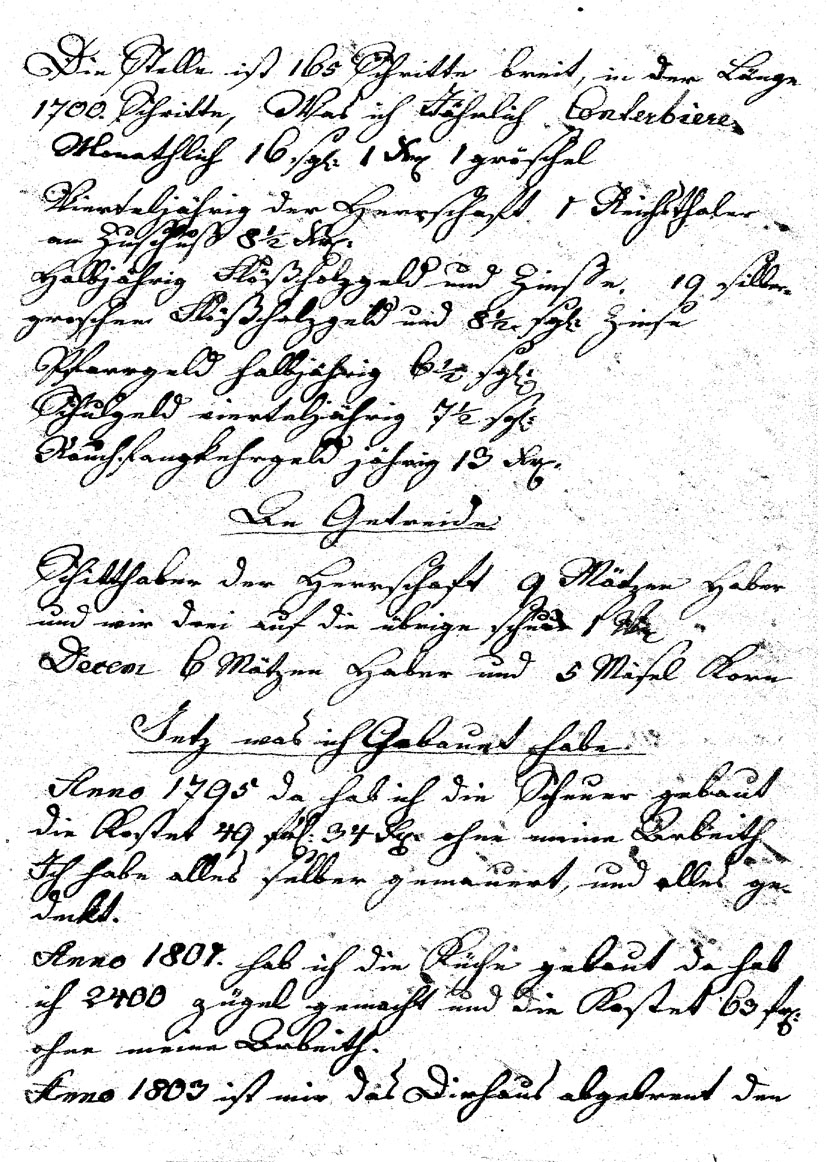 Die Stelle ist 165 Schritte breit, in der Länge
1700. Schritte, Was ich Jährlich Conterbiere
Monathlich 16 sgl: 1 Krz 1 gröschel
Vierteljährig der Herrschaft 1 Reichsthaler
an Zuschuß 8½ Krz.
Halbjährig Flößholzgeld und Zinße. 19 silber-
groschen Flößholzgeld und 8½ sgl: Zinse
Pfarrgeld halbjährig 6½ sgl:
Schulgeld vierteljährig 7½ sgl:
Rauchfangkehrgeld jährig 13 Krz.
An Getreide
Schitthaber der Herrschaft 9 Mätzen Haber
und wir drei auf die übrige 1
Decem 6 Mätzen Haber und 5 Mäsel Korn
Jetz was ich Gebauet habe
Anno 1795 da hab ich die Scheuer gebaut
die Kostet 49 34 Krz ohne meine Arbeith
Ich habe alles selber gemauert, und alles ge-
deckt.
Anno 1801. hab ich die Küche gebaut da hab
ich 2400 zügel gemacht und die Kostet 63
ohne meine Arbeith.
Anno 1803 ist mir das Dirhaus abgebrent den